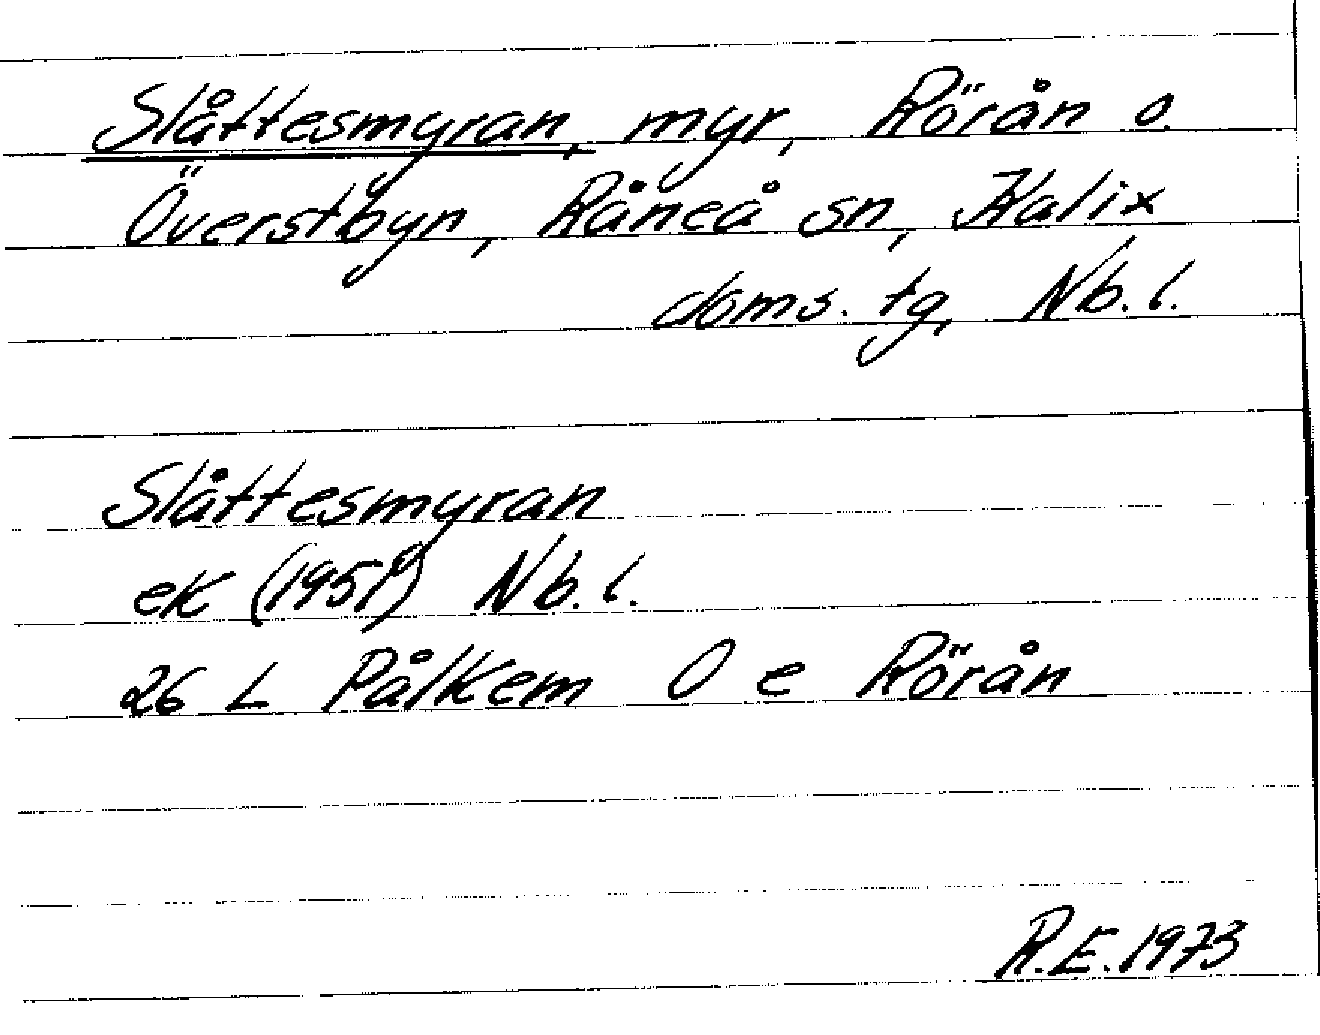 Slåttesmyran, myr, Rörån o.
Överstbyn, Råneå sn, Kalix
doms. tg, Nb. l.
Slåttesmyran
ek (1951) Nb. l.
26 L Pålkem O e Rörån
R.E. 1973